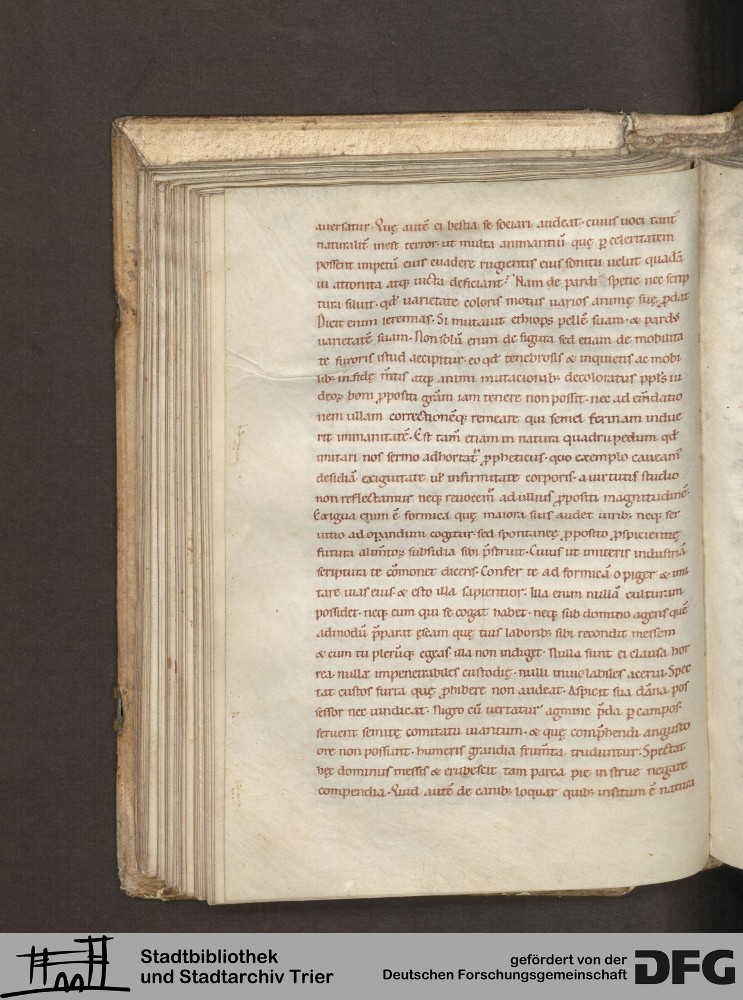 auersatur. Que autē ei bestia se sociari audeat. cuius uoci tant᷑
naturalit᷑ inest terror. ut multa animantiū quę p̱ celeritatem
possent impetū eius euadere rugientis eius sonitu uelut quadā
ui attonita atq; deficiant. Nam de pardi specie nec scrip
tura siluit. qđ uarietate coloris motus uarios animę suę p̱dat
Dicit enim ieremias. Si mutauit ethiops pellē suam. & pardꝰ
uarietatē suam. Non solū enim de figura sed etiam de mobilita
te furoris istud accipitur. eo qđ tenebrosis & inquietis ac mobi
lib; infidę m̄tis atq; animi mutacionib; decoloratus ppl's iu
deoꝝ boni p̱positi gr̄am iam tenere non possit. nec ad em̄datio
nem ullam correctionēq; remeare qui semel ferinam indue
rit immanitatē. Est tam̄ etiam in natura quadrupedum qđ
imitari nos sermo adhortat᷑ p̱pheticus. quo exemplo caueam᷑
desidiā exiguitate ul' infirmitate corporis. a uirtutis studio
non reflectamur neq; reuocem᷑ ad ullius p̱positi magnitudinē.
Exigua enim ē formica quę maiora suis audet uirib; neq; ser
uitio ad op̱andum cogitur. sed spontaneę p̱posito p̱spicientię
futura alim̄toꝝ subsidia sibi p̄struit. Cuius ut imiteris industriā
scriptura te cōmonet dicens. Confer te ad formicā o piger & imi
tare uias eius. & esto illa sapientior. Illa enim nullā culturam
possidet. neq; eum qui se cogat habet. neq; sub domino agens quē
admodū p̄parat escam quę tuis laborib; sibi recondit messem
& cum tu plerūq; egeas. illa non indiget. Nulla sunt ei clausa hor
rea nullę impenetrabiles custodię. nulli inuiolabiles acerui. Spec
tat custos furta quę p̱hibere non audeat. Aspicit sua dāna pos
sessor nec uindicat. Nigro cū uertatur agmine p̄da p̱ campos.
feruent semitę comitatu uiantum. & quę comp̄hendi angusto
ore non possunt. humeris grandia frum̄ta truduntur. Spectat
hęc dominus messis & erubescit tam parca pie industrię negare
compendia. Quid autē de canib; loquar quib; insitum ē natura
Stadtbibliothek
und Stadtarchiv Trier
gefördert von der
Deutschen Forschungsgemeinschaft DFG